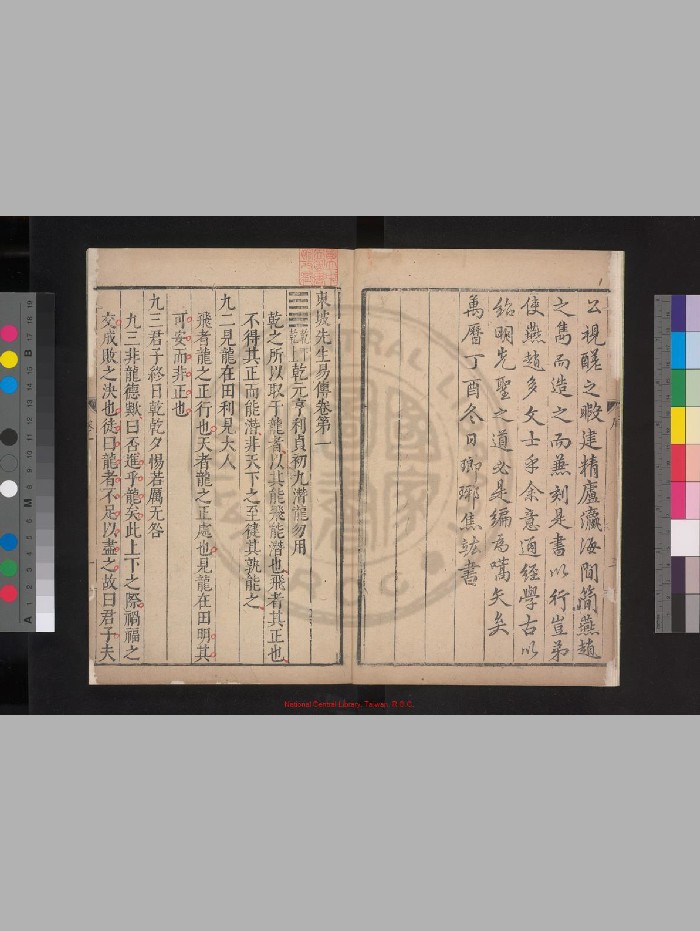 公視醝之暇建精廬瀛海間簡燕趙
之雋而造之而無刻是書以行豈弟
使燕趙多文士乎余意通經學古以
紹明先聖之道必是編為嚆矢矣
萬曆丁酉冬日瑯琊焦竑書
東坡先生易傳卷第一
乾下乾上乾元亨利貞初九潛龍勿用
乾之所以取于龍者以其能飛能潛也飛者其正也
不得其正而能潛非天下之至健其孰能之
九二見龍在田利見大人
飛者龍之正行也天者龍之正處也見龍在田明其
可安而非正也
九三君子終日乾乾夕惕若厲无咎
九三非龍德歟曰否進乎龍矣此上下之際禍福之
交成敗之決也徒曰龍者不足以盡之故曰君子夫
National Central Library, Taiwan, R.O.C.